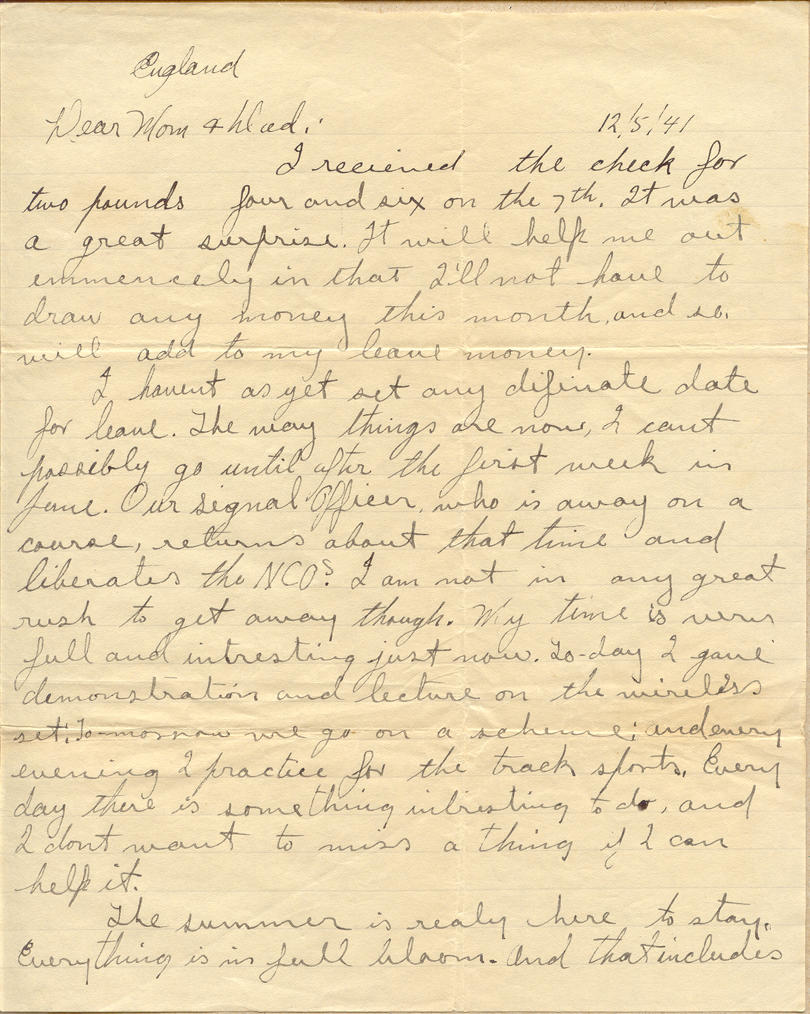 England
Dear Mom & Dad: 12/5/41
I recieved the check for
two pounds four and six on the 7th. It was
a great surprise. It will help me out
emmencely in that I'll not have to
draw any money this month, and so,
will add to my leave money.
I havent as yet set any difinate date
for leave. The way things are now, I cant
possibly go until after the first week in
June. Our signal Officer, who is away on a
course, returns about that time and
liberates the NCOs. I am not in any great
rush to get away though. My time is very
full and intresting just now. To-day I gave
demonstration and lecture on the wireless
set; To-morrow we go on a scheme; and every
evening I practice for the track sports. Every
day there is something intresting to do, and
I dont want to miss a thing if I can
help it.
The summer is realy here to stay.
Everything is in full bloom. And that includes